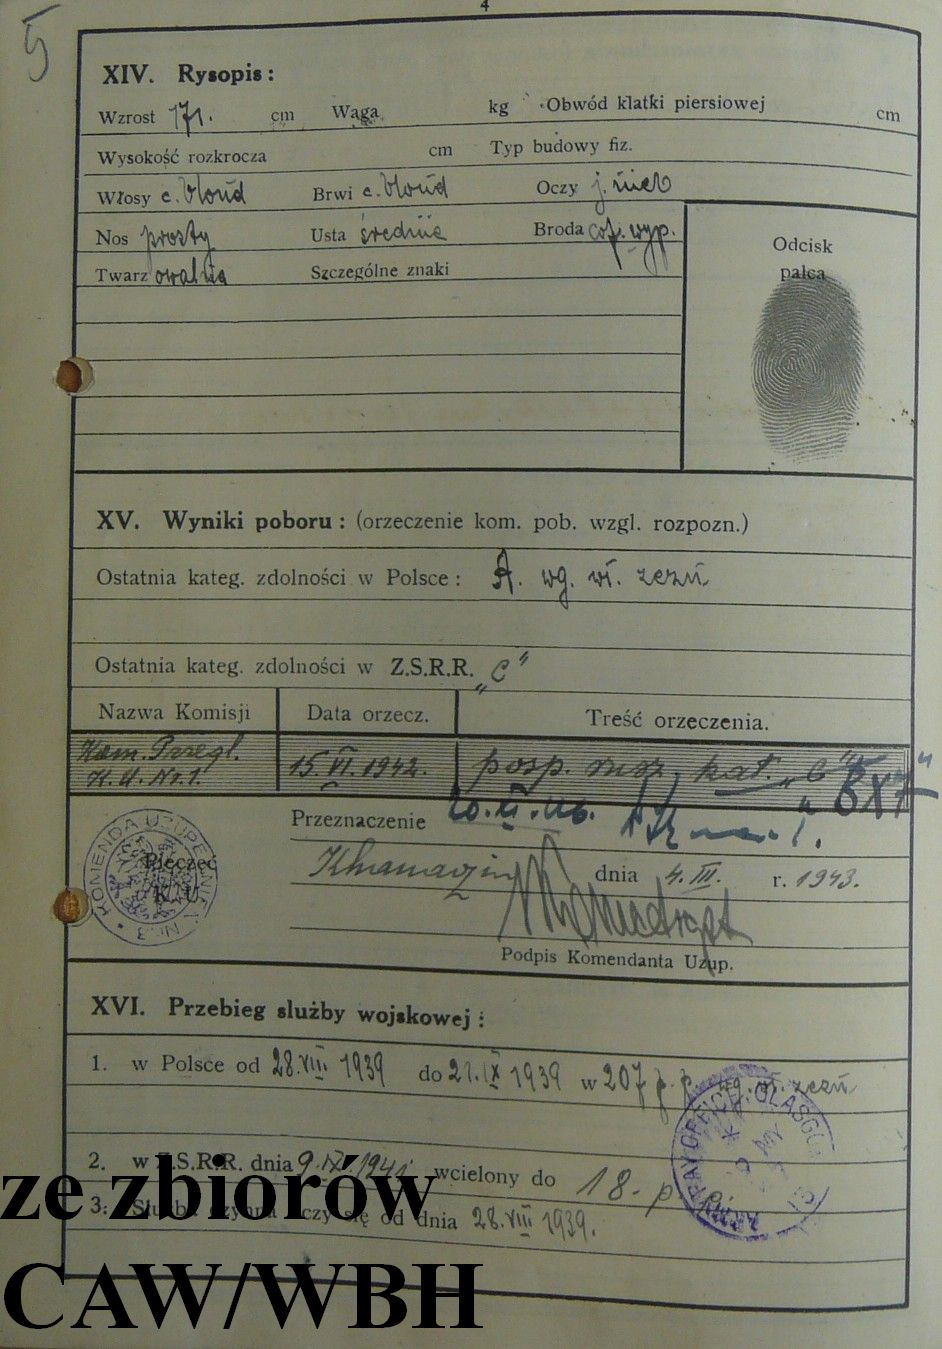 4
5
XIV. Rysopis:
Wzrost 171. cm Waga kg Obwód klatki piersiowej cm
Wysokość rozkrocza cm Typ budowy fiz.
Włosy c. blond Brwi c. blond Oczy j. nieb
Nos prosty Usta średnie Broda cof. wyp.
Twarz owalna Szczególne znaki
Odcisk
palca
XV. Wyniki poboru: (orzeczenie kom. pob. wzgl. rozpozn.)
Ostatnia kateg. zdolności w Polsce: A. wg. wł. zezń
Ostatnia kateg. zdolności w Z.S.R.R. „C"
Nazwa Komisji Data orzecz. Treść orzeczenia.
Kom. Przegl. 15.VI.1942. posp. rusz. kat. „C"
Nr.1.
Przeznaczenie
KOMENDA UZUPEŁNIEŃ Nr.3
Pieczęć
K. U
Khanaqin dnia 4.III. r. 1943.
Podpis Komendanta Uzup.
XVI. Przebieg służby wojskowej:
1. w Polsce od 28.VIII 1939 do 21.IX 1939 w 207 p.p. wg. wł. zezń
2. w Z.S.R.R. dnia 9.IX.1941. wcielony do 18. p. p.
3. Służba czynna liczy się od dnia 28.VIII 1939.
ARMY PAY OFFICE GLASGOW
MY
ze zbiorów
CAW/WBH